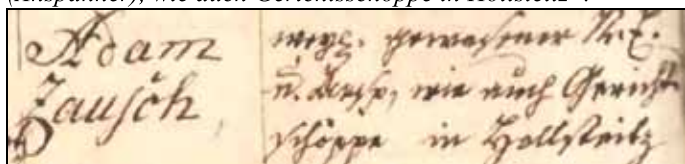 (Anspänner), wie auch Gerichtsschöppe in Hollsteitz“.
Adam
Zausch,
weyl. gewesener
u. Ansp, wie auch Gerichts
schöppe in Hollsteitz